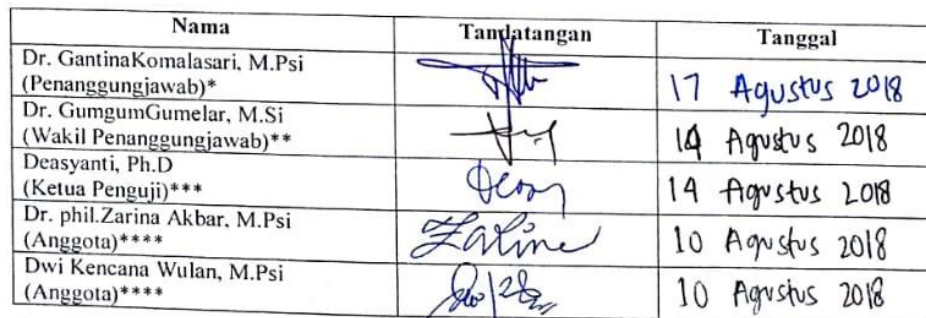 Nama Tandatangan Tanggal
Dr. GantinaKomalasari, M.Psi
(Penanggungjawab)* 17 Agustus 2018
Dr. GumgumGumelar, M.Si
(Wakil Penanggungjawab)** 14 Agustus 2018
Deasyanti, Ph.D
(Ketua Penguji)*** 14 Agustus 2018
Dr. phil.Zarina Akbar, M.Psi
(Anggota)**** 10 Agustus 2018
Dwi Kencana Wulan, M.Psi
(Anggota)**** 10 Agustus 2018